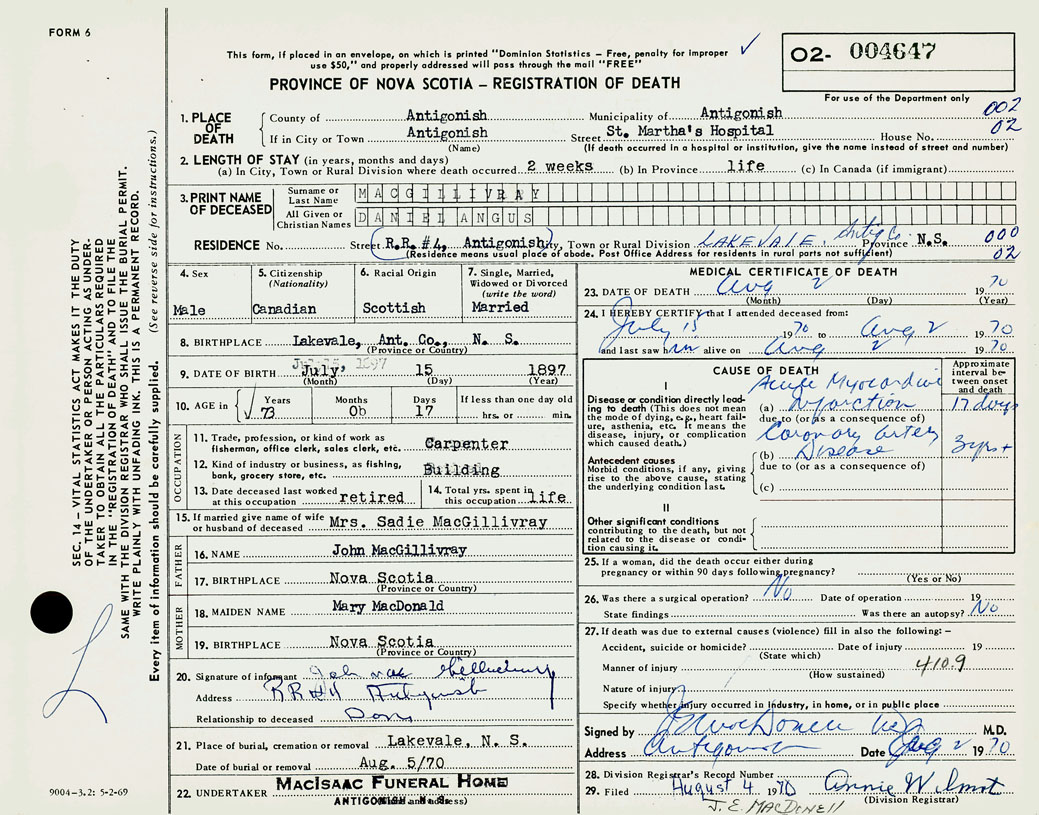 FORM 6
This form, if placed in an envelope, on which is printed "Dominion Statistics – Free, penalty for improper
use $50," and properly addressed will pass through the mail "FREE"
✓
02- 004647
For use of the Department only
PROVINCE OF NOVA SCOTIA – REGISTRATION OF DEATH
1. PLACE OF DEATH
County of Antigonish Municipality of Antigonish 002
If in City or Town Antigonish Street St. Martha's Hospital House No. 02
(Name) (If death occurred in a hospital or institution, give the name instead of street and number)
2. LENGTH OF STAY (in years, months and days)
(a) In City, Town or Rural Division where death occurred 2 weeks (b) In Province life (c) In Canada (if immigrant)
3. PRINT NAME OF DECEASED
Surname or Last Name MACGILLIVRAY
All Given or Christian Names DANIEL ANGUS
RESIDENCE No. Street R.R. #4, Antigonish City, Town or Rural Division LAKEVALE, Antig Co. Province N.S. 000
(Residence means usual place of abode. Post Office Address for residents in rural parts not sufficient) 02
4. Sex
Male
5. Citizenship
(Nationality)
Canadian
6. Racial Origin
Scottish
7. Single, Married,
Widowed or Divorced
(write the word)
Married
8. BIRTHPLACE Lakevale, Ant. Co., N. S.
(Province or Country)
9. DATE OF BIRTH July 15 1897
(Month) (Day) (Year)
10. AGE in Years 73 Months 0b Days 17 If less than one day old
hrs. or min.
OCCUPATION
11. Trade, profession, or kind of work as
fisherman, office clerk, sales clerk, etc. Carpenter
12. Kind of industry or business, as fishing,
bank, grocery store, etc. Building
13. Date deceased last worked
at this occupation retired
14. Total yrs. spent in
this occupation life
15. If married give name of wife
or husband of deceased Mrs. Sadie MacGillivray
FATHER
16. NAME John MacGillivray
17. BIRTHPLACE Nova Scotia
(Province or Country)
MOTHER
18. MAIDEN NAME Mary MacDonald
19. BIRTHPLACE Nova Scotia
(Province or Country)
20. Signature of informant
Address RR #4 Antigonish
Relationship to deceased
21. Place of burial, cremation or removal Lakevale, N. S.
Date of burial or removal Aug. 5/70
22. UNDERTAKER MacIsaac Funeral Home
ANTIGONISH N.S.
(Name and address)
MEDICAL CERTIFICATE OF DEATH
23. DATE OF DEATH Aug 2 1970
(Month) (Day) (Year)
24. I HEREBY CERTIFY that I attended deceased from:
July 15 1970 to Aug 2 1970
and last saw him alive on Aug 2 1970
CAUSE OF DEATH
Approximate interval between onset and death
I
Disease or condition directly leading to death (This does not mean the mode of dying, e.g., heart failure, asthenia, etc. It means the disease, injury, or complication which caused death.)
Acute Myocardial
(a) Infarction 17 days
due to (or as a consequence of)
Coronary Artery
(b) Disease 3yrs +
due to (or as a consequence of)
(c)
Antecedent causes
Morbid conditions, if any, giving rise to the above cause, stating the underlying condition last.
II
Other significant conditions
contributing to the death, but not related to the disease or condition causing it.
25. If a woman, did the death occur either during
pregnancy or within 90 days following pregnancy?
(Yes or No)
26. Was there a surgical operation? No Date of operation 19
State findings Was there an autopsy? No
27. If death was due to external causes (violence) fill in also the following: –
Accident, suicide or homicide? Date of injury 19
(State which)
Manner of injury 410.9
(How sustained)
Nature of injury
Specify whether injury occurred in industry, in home, or in public place
Signed by M.D.
Address Antigonish Date Aug 2 1970
28. Division Registrar's Record Number
29. Filed August 4 1970 Annie Wilmot
(Division Registrar)
J. E. MACDONELL
SEC. 14 – VITAL STATISTICS ACT MAKES IT THE DUTY
OF THE UNDERTAKER OR PERSON ACTING AS UNDERTAKER TO OBTAIN ALL THE PARTICULARS REQUIRED
IN THE "REGISTRATION OF DEATH" AND TO FILE THE
SAME WITH THE DIVISION REGISTRAR WHO SHALL ISSUE THE BURIAL PERMIT.
WRITE PLAINLY WITH UNFADING INK. THIS IS A PERMANENT RECORD.
Every item of information should be carefully supplied. (See reverse side for instructions.)
9004–3.2: 5-2-69